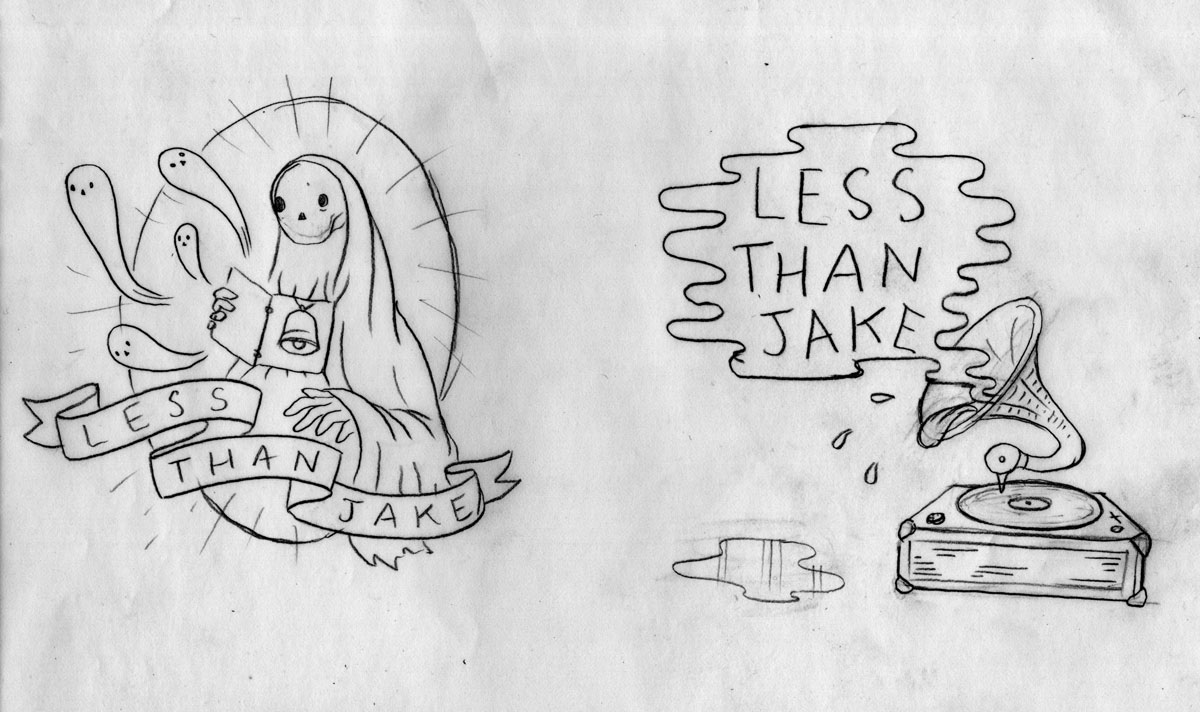 LESS
THAN
JAKE
LESS
THAN
JAKE